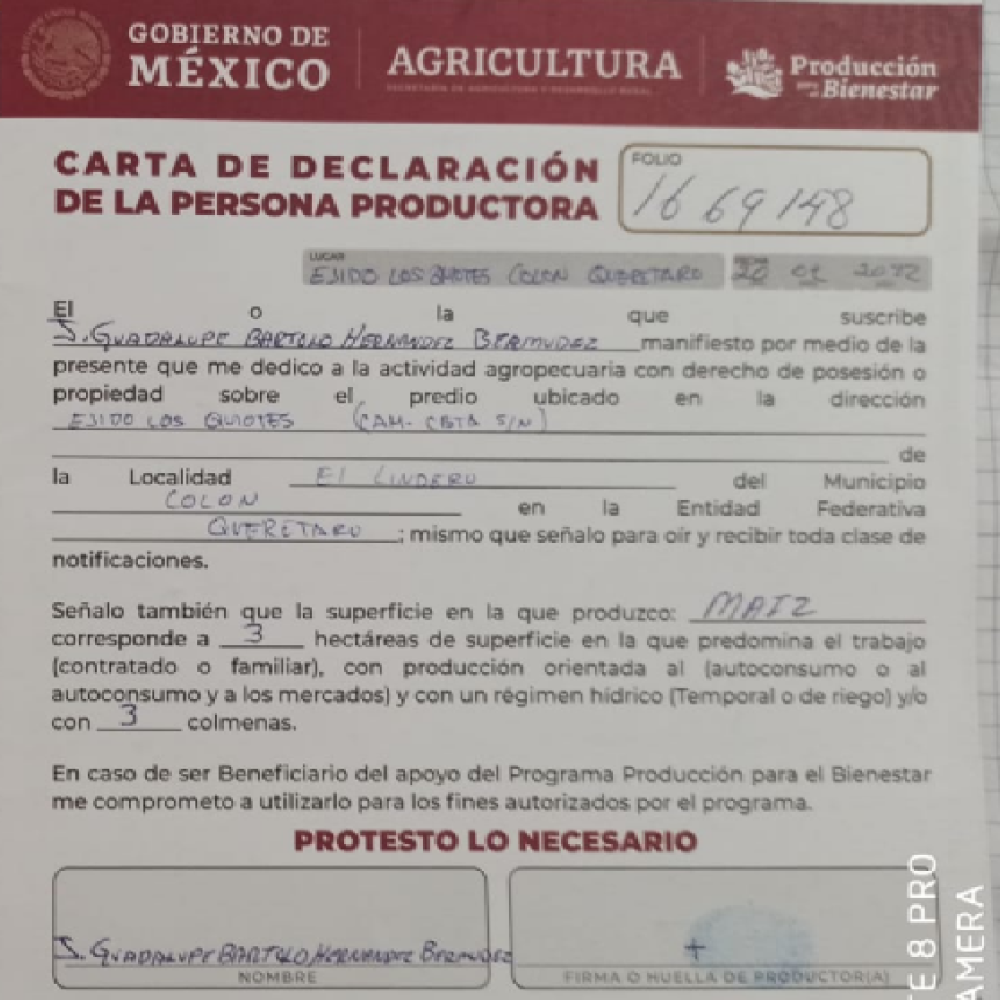 GOBIERNO DE
MÉXICO
AGRICULTURA
SECRETARÍA DE AGRICULTURA Y DESARROLLO RURAL
Producción
para el Bienestar
CARTA DE DECLARACIÓN
DE LA PERSONA PRODUCTORA
FOLIO
16 69 148
LUGAR
EJIDO LOS COLON QUERETARO
El o la que suscribe
J. GUADALUPE BARTOLO HERNANDEZ BERMUDEZ manifiesto por medio de la
presente que me dedico a la actividad agropecuaria con derecho de posesión o
propiedad sobre el predio ubicado en la dirección
EJIDO LOS QUIOTES (CAM. CBTA S/N)
de
la Localidad El LINDERO del Municipio
COLON en la Entidad Federativa
QUERETARO ; mismo que señalo para oír y recibir toda clase de
notificaciones.
Señalo también que la superficie en la que produzco: MAIZ
corresponde a 3 hectáreas de superficie en la que predomina el trabajo
(contratado o familiar), con producción orientada al (autoconsumo o al
autoconsumo y a los mercados) y con un régimen hídrico (Temporal o de riego) y/o
con 3 colmenas.
En caso de ser Beneficiario del apoyo del Programa Producción para el Bienestar
me comprometo a utilizarlo para los fines autorizados por el programa.
PROTESTO LO NECESARIO
J. GUADALUPE BARTOLO HERNANDEZ BERMUDEZ
NOMBRE
FIRMA O HUELLA DE PRODUCTOR(A)
E 8 PRO
AMERA